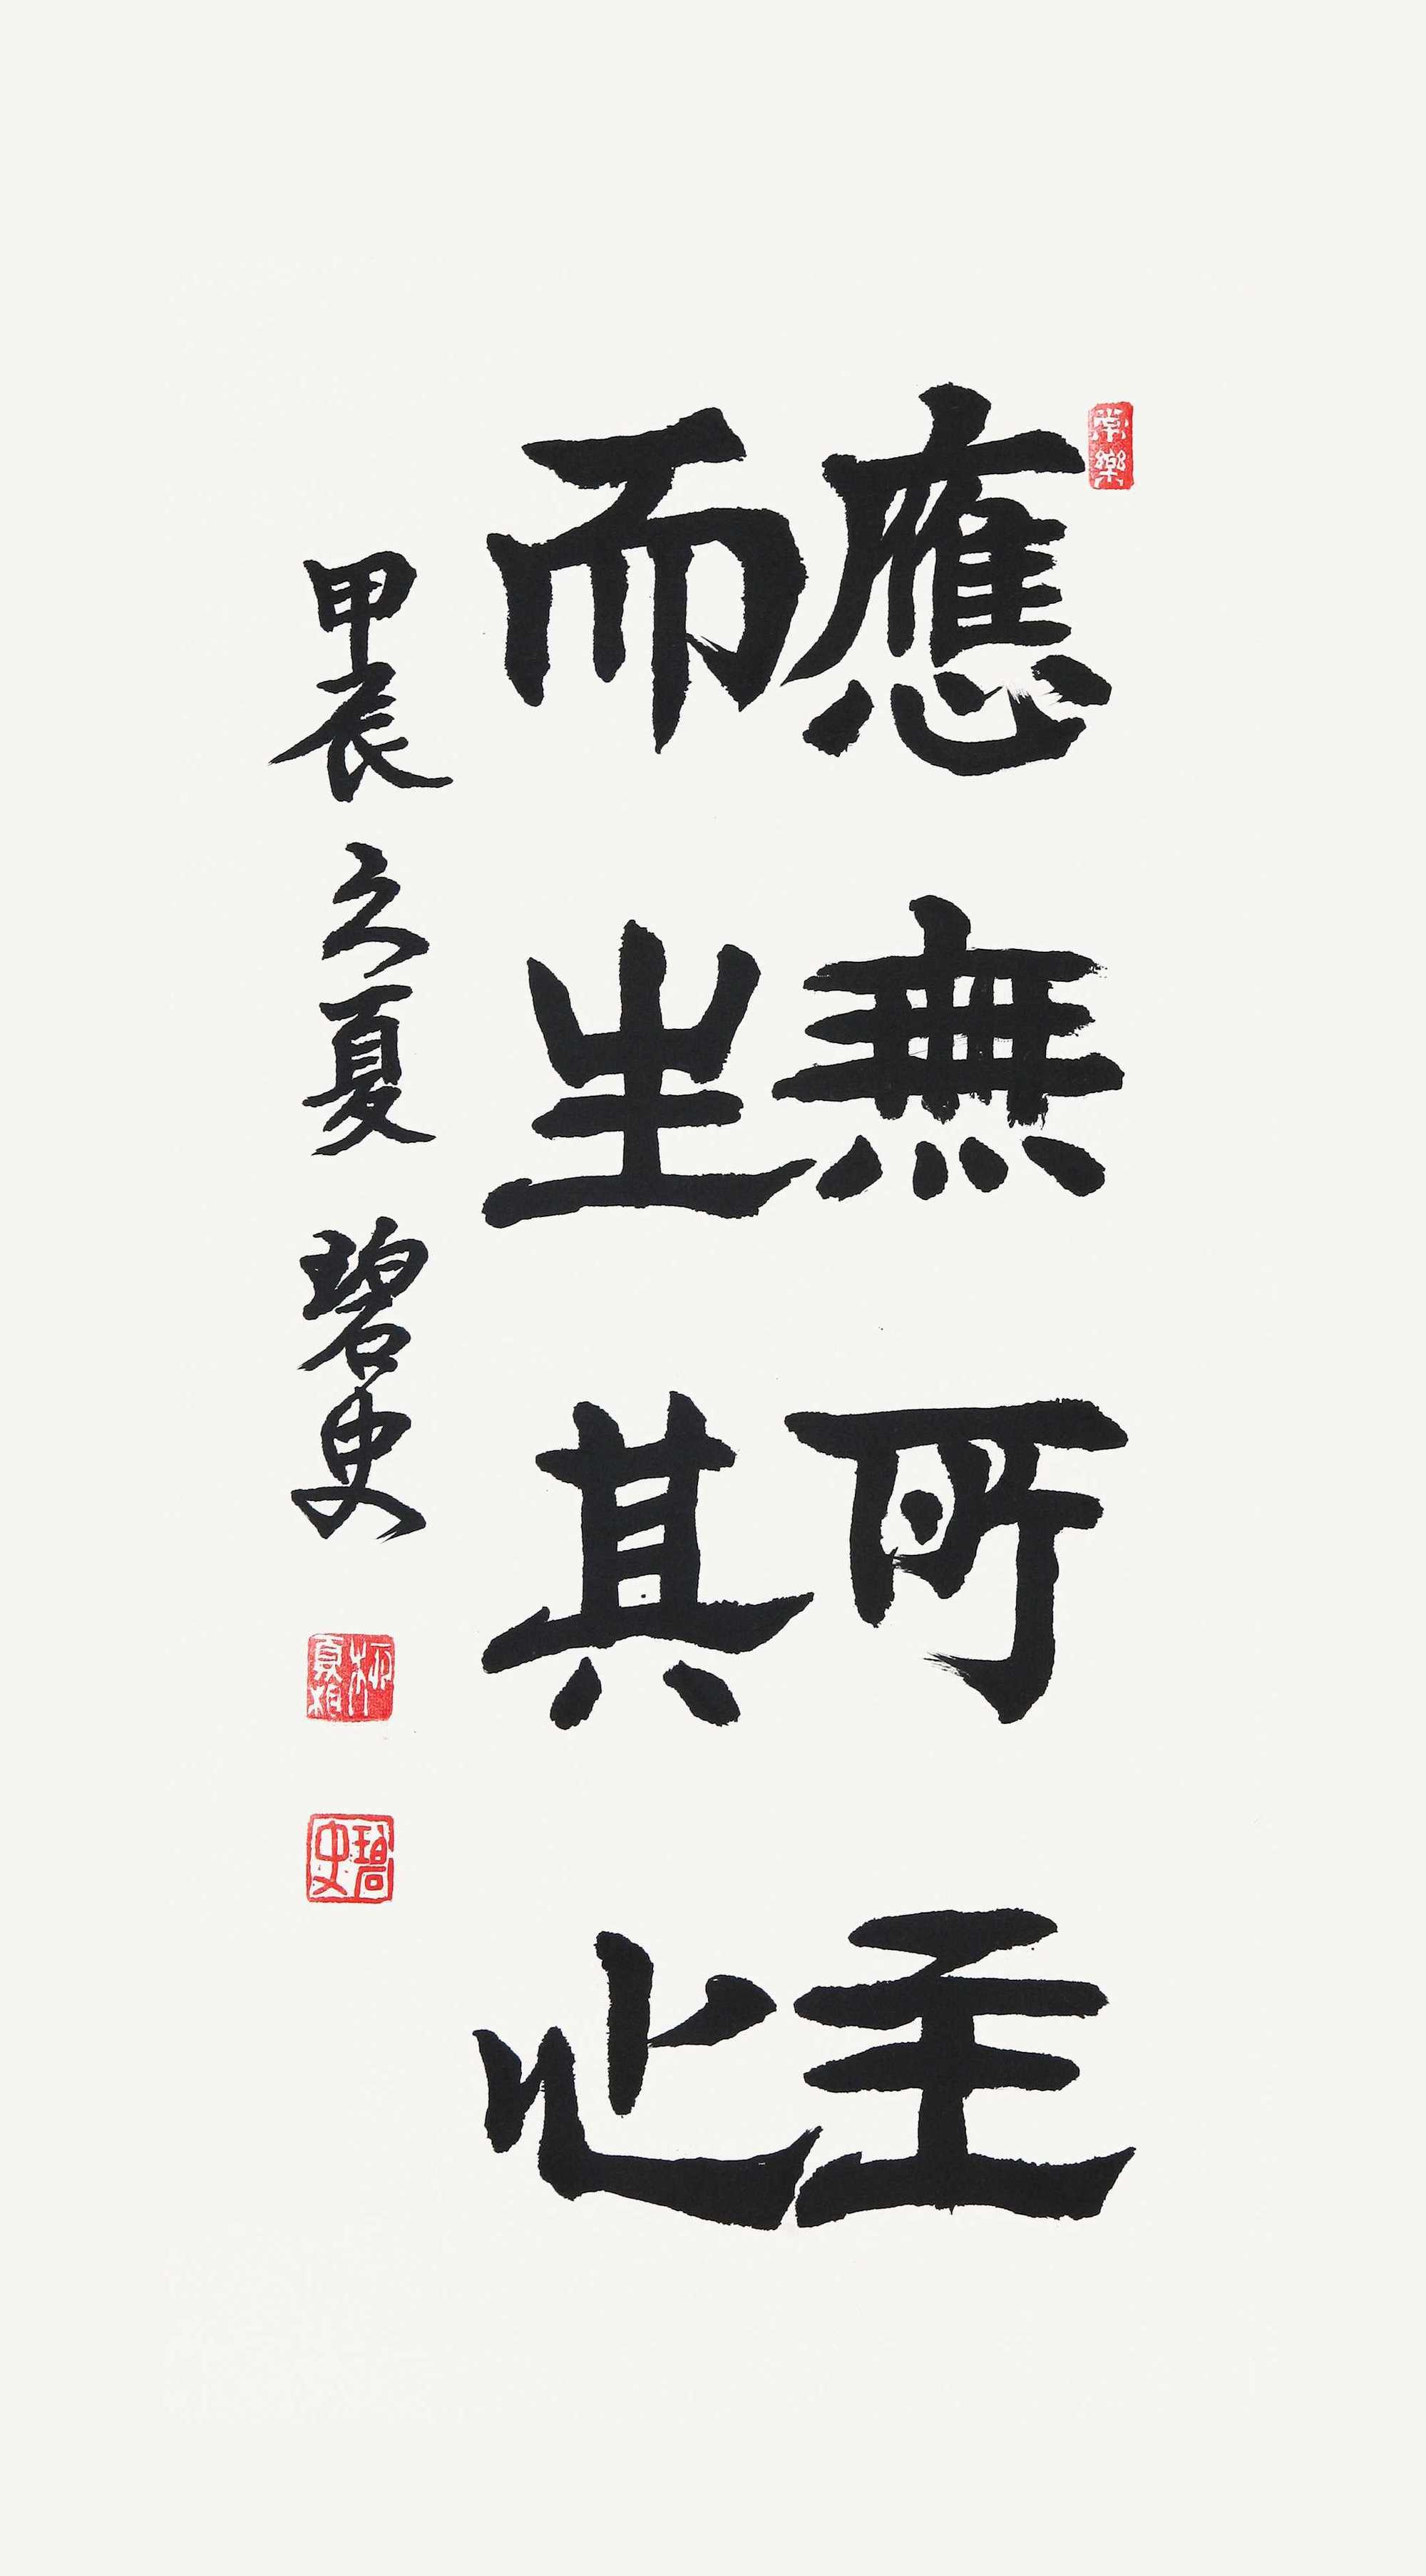 常樂
應無所主
而生其心
甲辰之夏 碧史
碧史